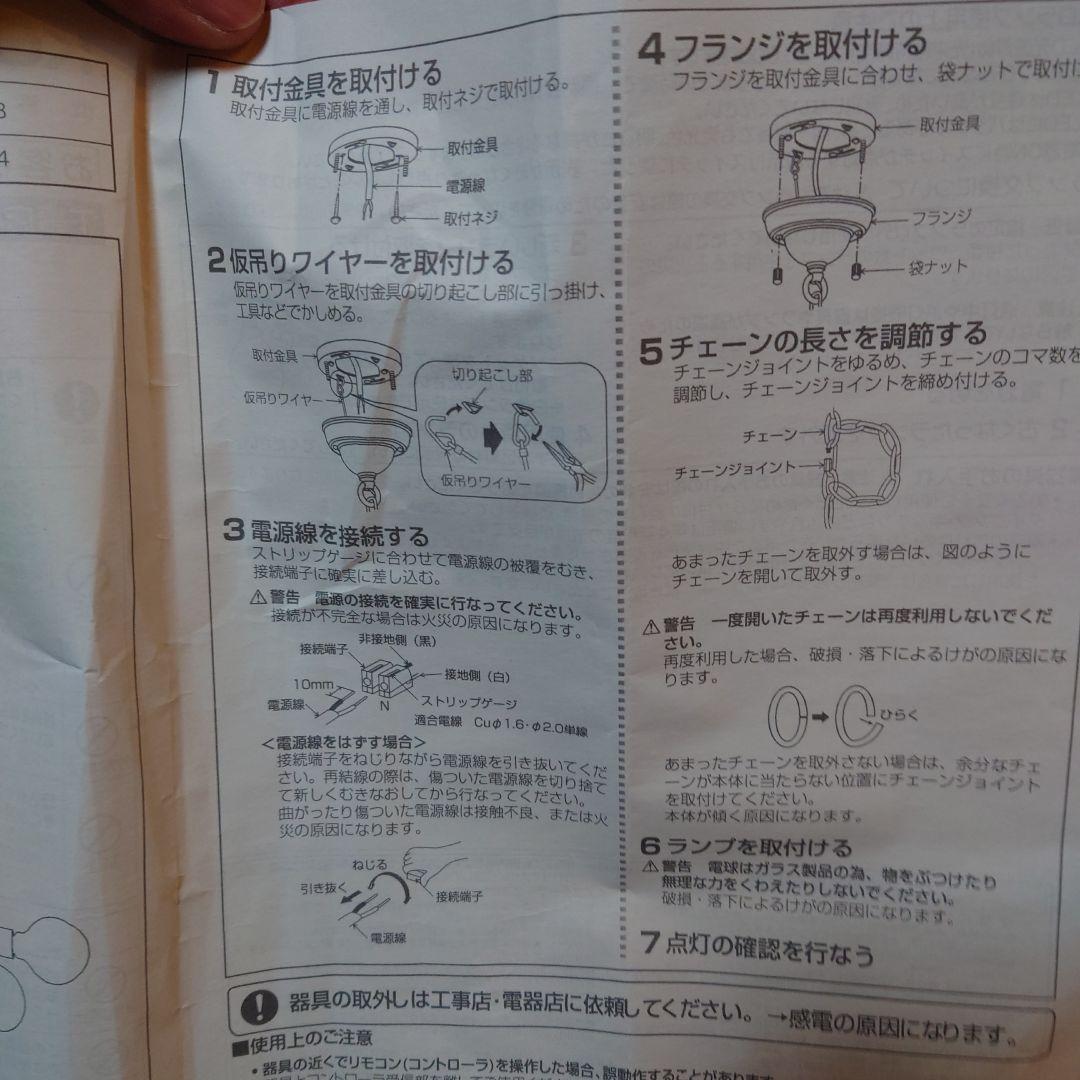 8
4
1 取付金具を取付ける
取付金具に電源線を通し、取付ネジで取付ける。
取付金具
電源線
取付ネジ
2 仮吊りワイヤーを取付ける
仮吊りワイヤーを取付金具の切り起こし部に引っ掛け、
工具などでかしめる。
取付金具
切り起こし部
仮吊りワイヤー
仮吊りワイヤー
3 電源線を接続する
ストリップゲージに合わせて電源線の被覆をむき、
接続端子に確実に差し込む。
⚠警告 電源の接続を確実に行なってください。
接続が不完全な場合は火災の原因になります。
非接地側（黒）
接続端子
接地側（白）
10mm
電源線
N
ストリップゲージ
適合電線 Cuφ1.6・φ2.0単線
＜電源線をはずす場合＞
接続端子をねじりながら電源線を引き抜いてくだ
さい。再結線の際は、傷ついた電源線を切り捨て
て新しくむきなおしてから行なってください。
曲がったり傷ついた電源線は接触不良、または火
災の原因になります。
ねじる
引き抜く
接続端子
電源線
4 フランジを取付ける
フランジを取付金具に合わせ、袋ナットで取付け
取付金具
フランジ
袋ナット
5 チェーンの長さを調節する
チェーンジョイントをゆるめ、チェーンのコマ数を
調節し、チェーンジョイントを締め付ける。
チェーン
チェーンジョイント
あまったチェーンを取外す場合は、図のように
チェーンを開いて取外す。
⚠警告 一度開いたチェーンは再度利用しないでくだ
さい。
再度利用した場合、破損・落下によるけがの原因にな
ります。
ひらく
あまったチェーンを取外さない場合は、余分なチェ
ーンが本体に当たらない位置にチェーンジョイント
を取付けてください。
本体が傾く原因になります。
6 ランプを取付ける
⚠警告 電球はガラス製品の為、物をぶつけたり
無理な力をくわえたりしないでください。
破損・落下によるけがの原因になります。
7 点灯の確認を行なう
器具の取外しは工事店・電器店に依頼してください。→感電の原因になります。
■使用上のご注意
・器具の近くでリモコン(コントローラ)を操作した場合、誤動作することがあります